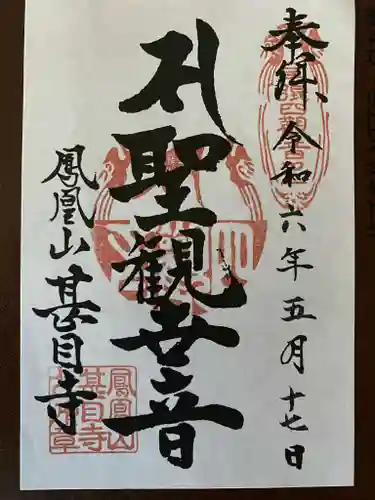 奉拝 令和六年五月十七日
聖観世音
鳳凰山 甚目寺
鳳凰山
甚目寺